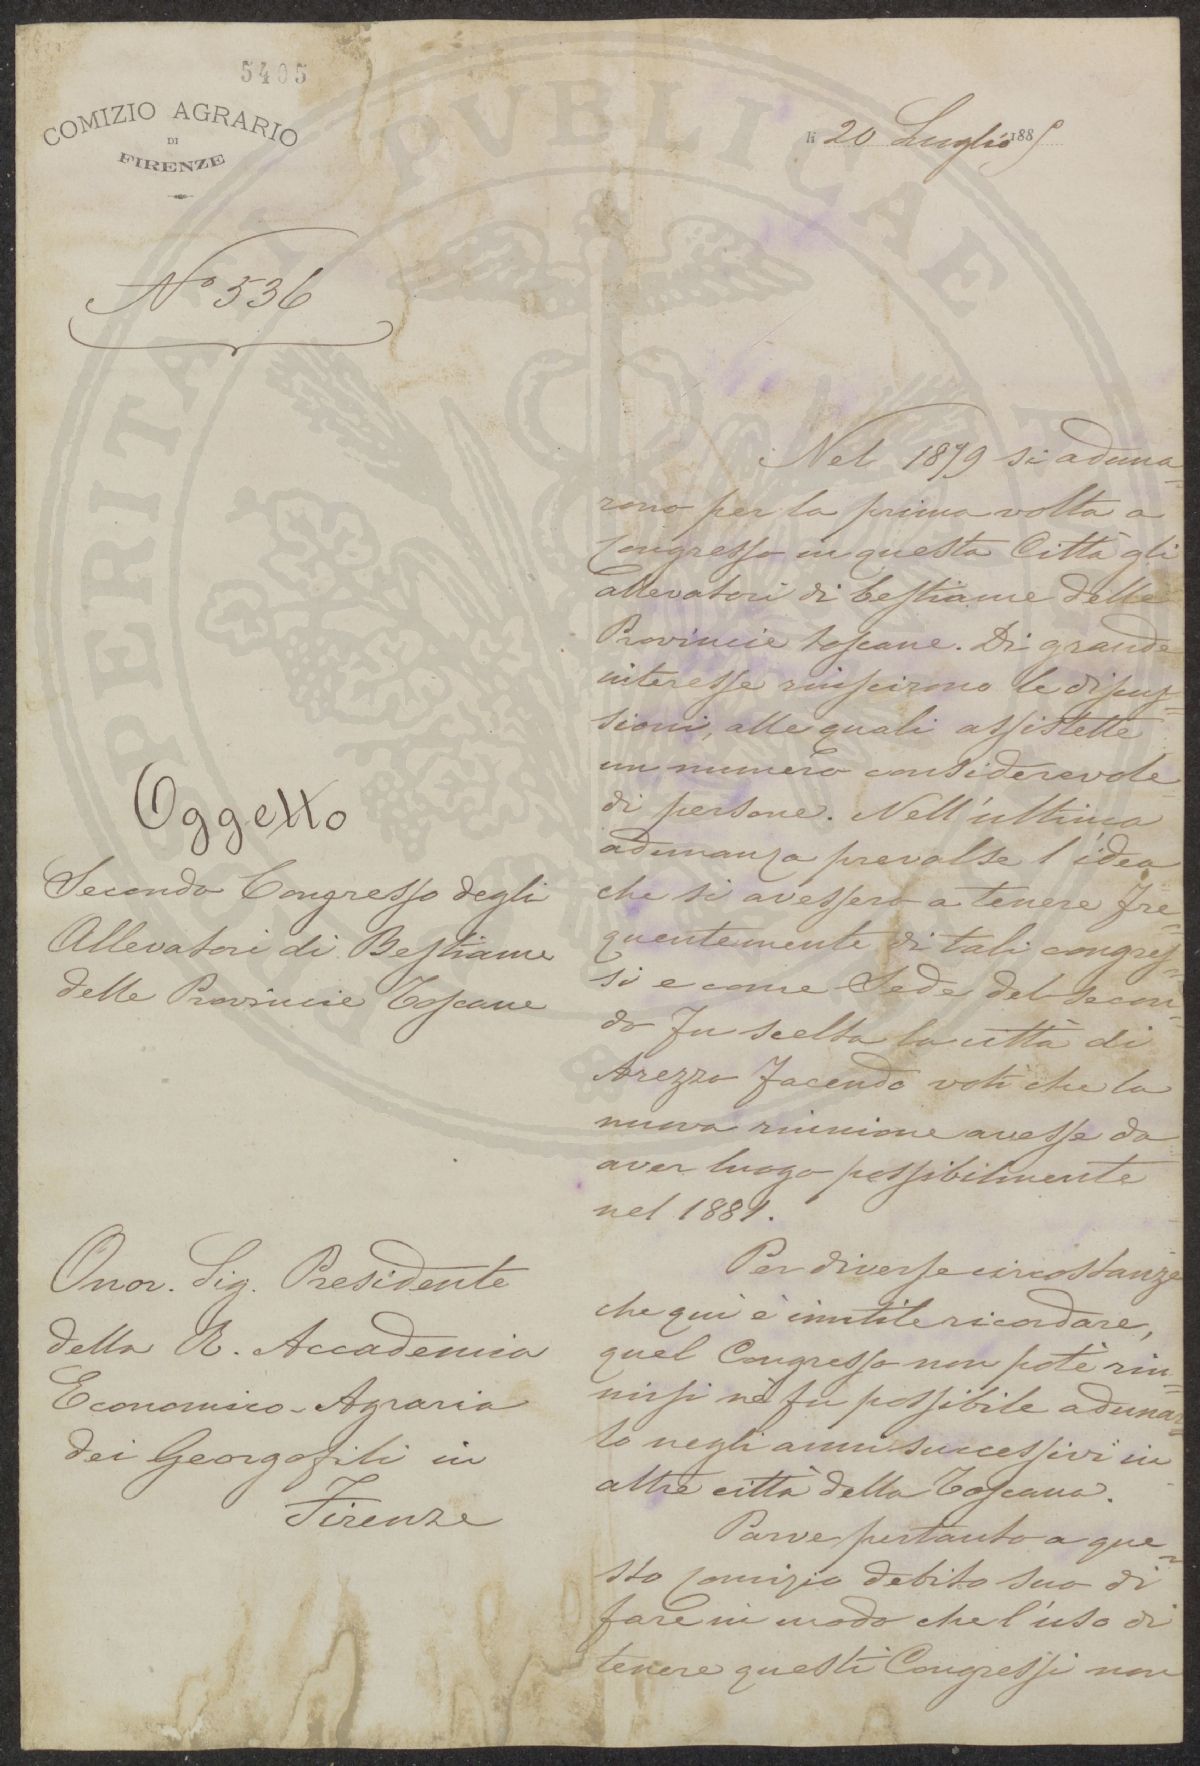 5405
COMIZIO AGRARIO
DI
FIRENZE
li 20 Luglio 1885
N° 536
Oggetto
Secondo Congresso degli
Allevatori di Bestiame
delle Provincie Toscane
Onor. Sig. Presidente
della R. Accademia
Economico-Agraria
dei Georgofili in
Firenze
Nel 1879 si aduna-
rono per la prima volta a
Congresso in questa Città gli
allevatori di bestiame delle
Provincie toscane. Di grande
interesse riuscirono le discus-
sioni, alle quali assistette
un numero considerevole
di persone. Nell'ultima
adunanza prevalse l'idea
che si avessero a tenere fre-
quentemente di tali congres-
si e come Sede del secon-
do fu scelta la città di
Arezzo facendo voti che la
nuova riunione avesse da
aver luogo possibilmente
nel 1881.
Per diverse circostanze
che quì è inutile ricordare,
quel Congresso non potè riu-
nirsi nè fu possibile adunar-
lo negli anni successivi in
altre città della Toscana.
Parve pertanto a que-
sto Comizio debito suo di
fare in modo che l'uso di
tenere questi Congressi non
PERITATI PVBLICAE